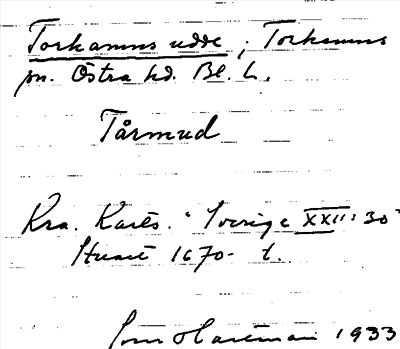 Torhamns udde; Torhamns
sn. Östra hd. Bl. L.
Tårmud
Kra. Kart. "Sverige XXII: 30"
1670- t.
1933